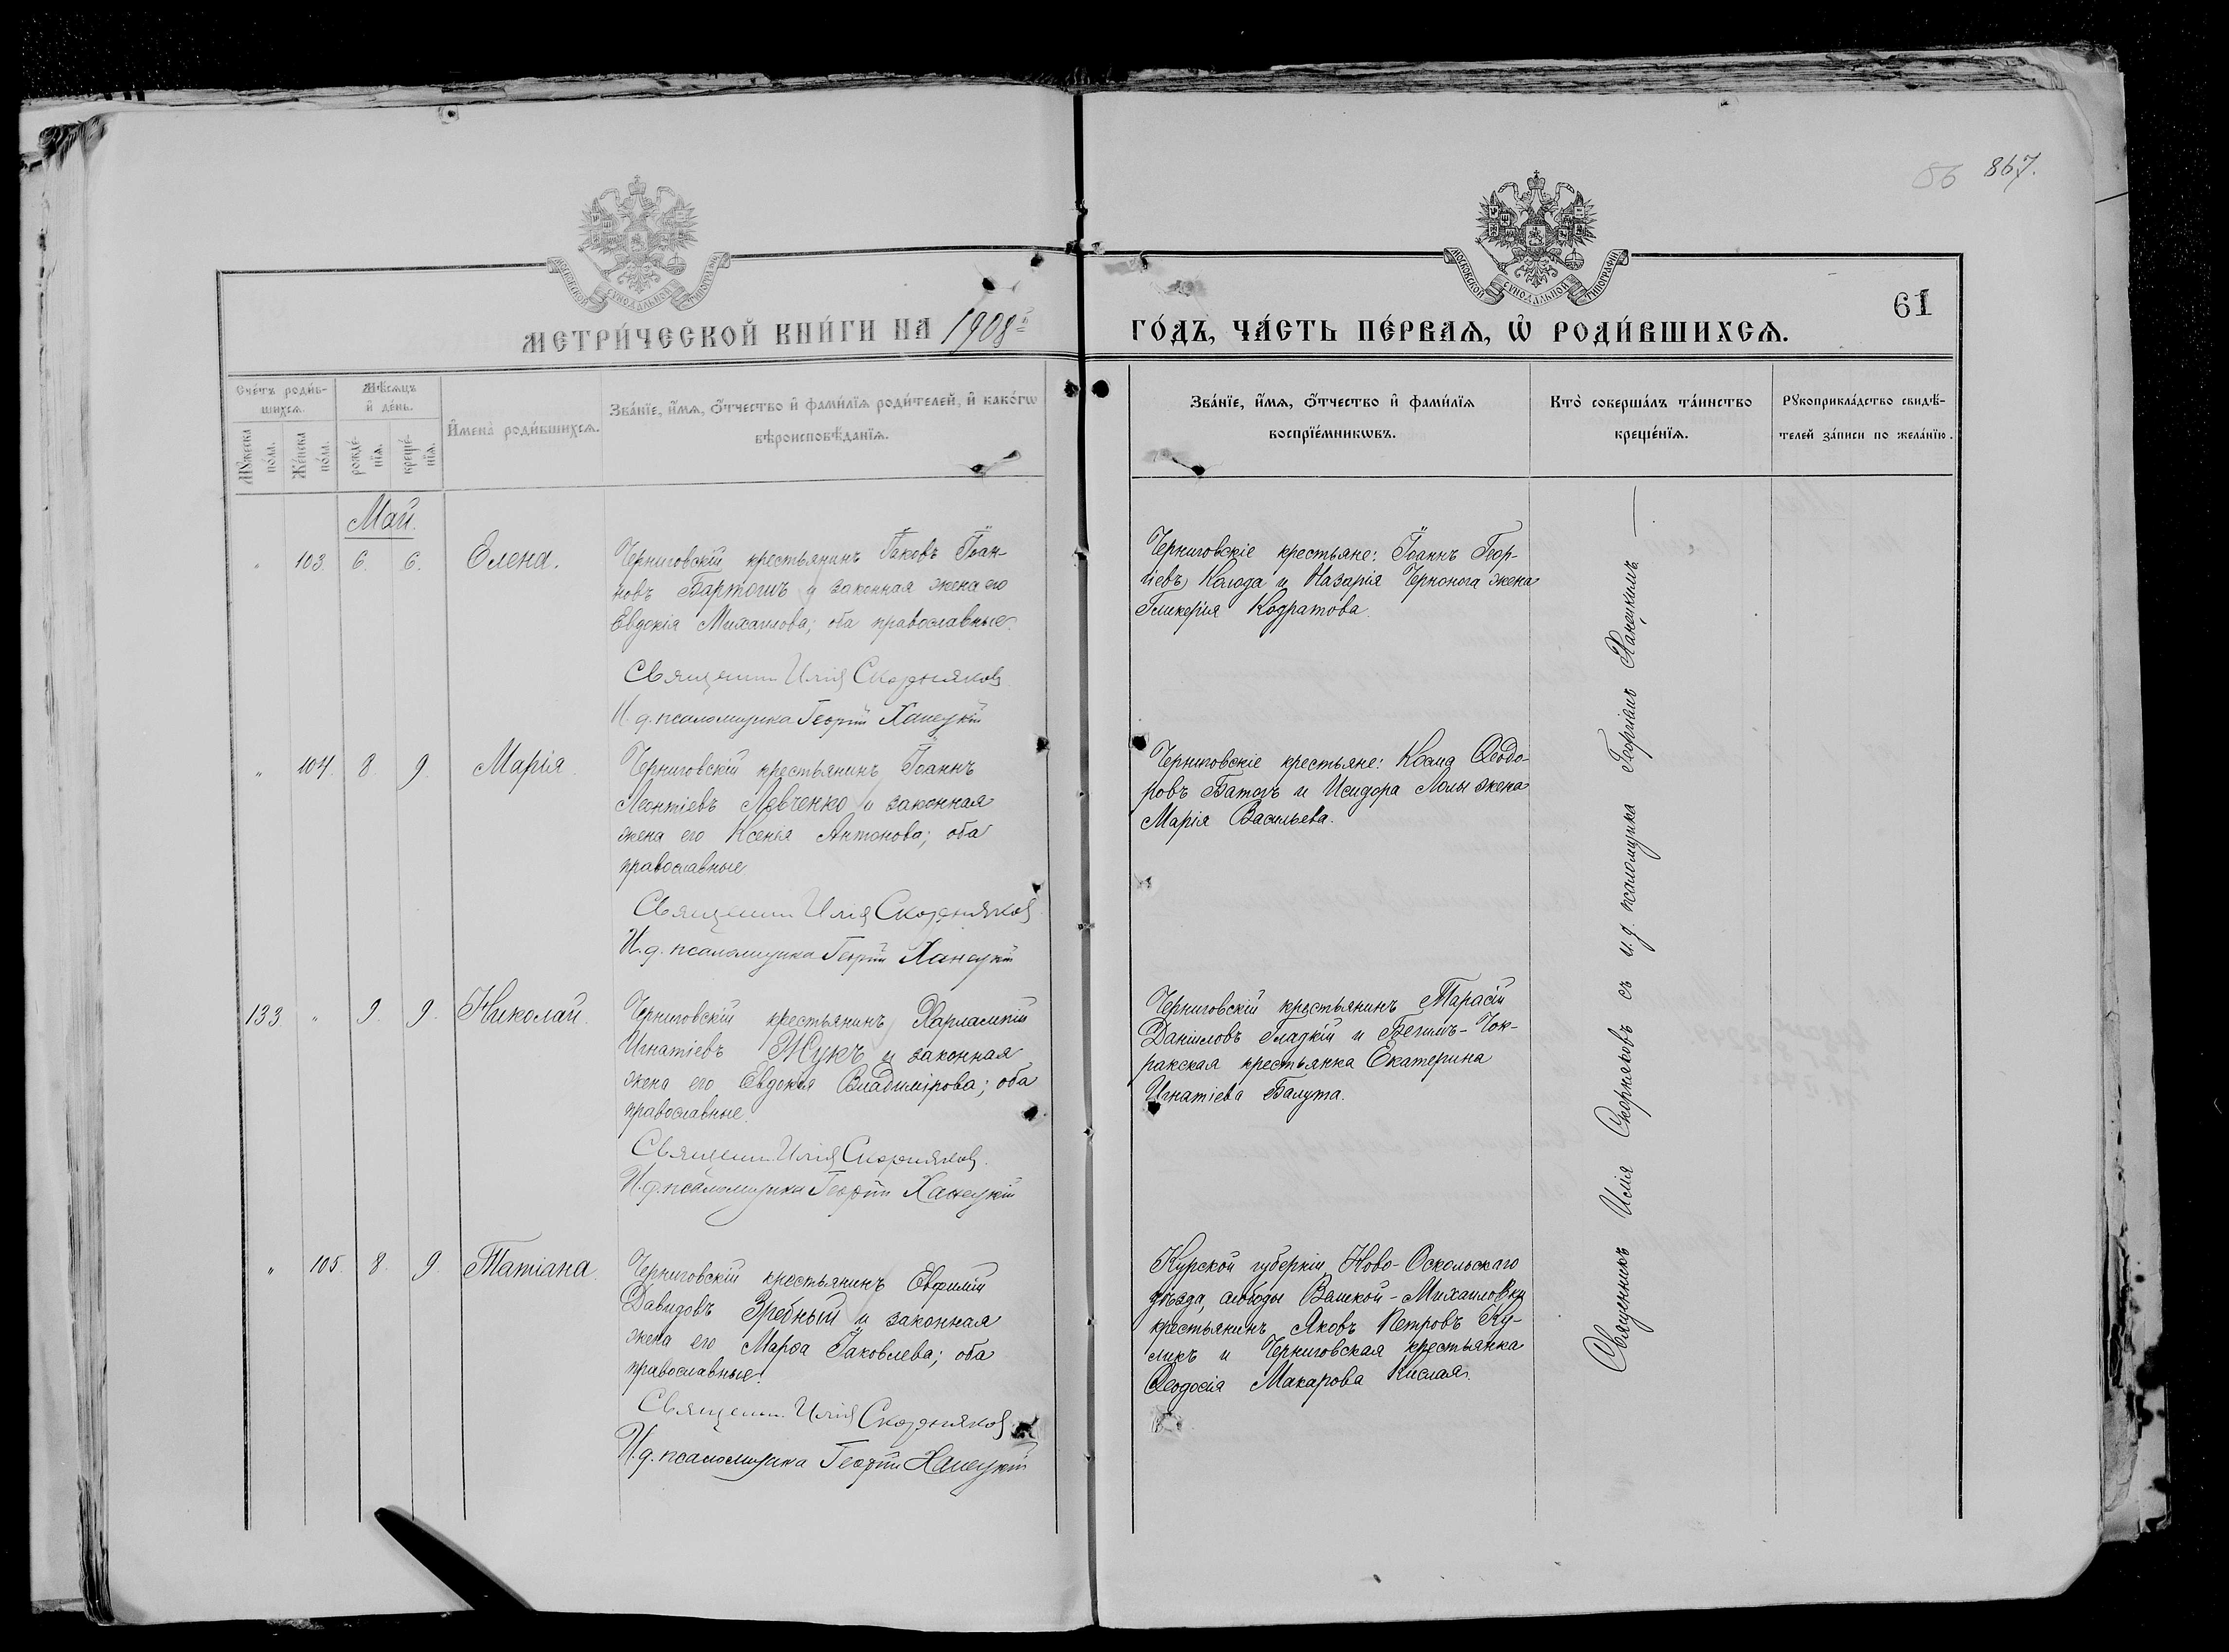 86 867.
МОСКОВСКОЙ СУНОДАЛЬНОЙ ТИПОГРАФІИ
МОСКОВСКОЙ СУНОДАЛЬНОЙ ТИПОГРАФІИ
61
МЕТРИ́ЧЕСКОЙ КНИ́ГИ НА 1908й
ГО́ДЪ, ЧА́СТЬ ПЕ́РВАѦ, Ѡ҆ РОДИ́ВШИХСѦ.
Сче́тъ роди́в-
шихсѧ.
Мѣ́сѧцъ
и҆ де́нь.
Мꙋ́жеска
по́ла.
Же́нска
по́ла.
рожде́-
нїѧ.
креще́-
нїѧ.
И҆мена̀ роди́вшихсѧ.
Зва́нїе, и҆́мѧ, ѻ҆́тчество и҆ фами́лїѧ роди́телей, и҆ како́гѡ
вѣроисповѣ́данїѧ.
Зва́нїе, и҆́мѧ, ѻ҆́тчество и҆ фами́лїѧ
воспрїе́мникѡвъ.
Кто̀ соверша́лъ та́инство
креще́нїѧ.
Рꙋкоприкла́дство свидѣ́-
телей за́писи по жела́нїю.
Май.
" 103. 6. 6. Елена.
Черниговскій крестьянинъ Іаковъ Іоан-
новъ Бартошъ и законная жена его
Евдокія Михаилова; оба православные.
Священник Илія Скорняковъ
И. д. псаломщика Георгій Ханецкій
Черниговскіе крестьяне: Іоаннъ Геор-
гіевъ Кагода и Назарія Чернонога жена
Гликерія Кодратова.
" 104. 8. 9. Марія.
Черниговскій крестьянинъ Іоаннъ
Леонтіевъ Левченко и законная
жена его Ксенія Антонова; оба
православные.
Священник Илія Скорняковъ
И. д. псаломщика Георгій Ханецкій
Черниговскіе крестьяне: Козма Ѳеодо-
ровъ Батогъ и Исидора Лолы жена
Марія Васильева.
133. " 9. 9. Николай.
Черниговскій крестьянинъ Харлампій
Игнатіевъ Жукъ и законная
жена его Евдокія Владимірова; оба
православные.
Священник Илія Скорняковъ.
И. д. псаломщика Георгій Ханецкій
Черниговскій крестьянинъ Тарасій
Даніиловъ Гладкій и Бегимъ-Чок-
ракская крестьянка Екатерина
Игнатіева Балута.
" 105. 8. 9. Татіана.
Черниговскій крестьянинъ Евфимій
Давидовъ Гребный и законная
жена его Марѳа Іаковлева; оба
православные.
Священник Илія Скорняковъ
И. д. псаломщика Георгій Ханецкій
Курской губерніи Ново-Оскольскаго
уѣзда, слободы Великой-Михайловки
крестьянинъ Яковъ Петровъ Ку-
ликъ и Черниговская крестьянка
Ѳеодосія Макарова Кислая.
Священникъ Илія Скорняковъ съ и. д. псаломщика Георгіемъ Ханецкимъ —